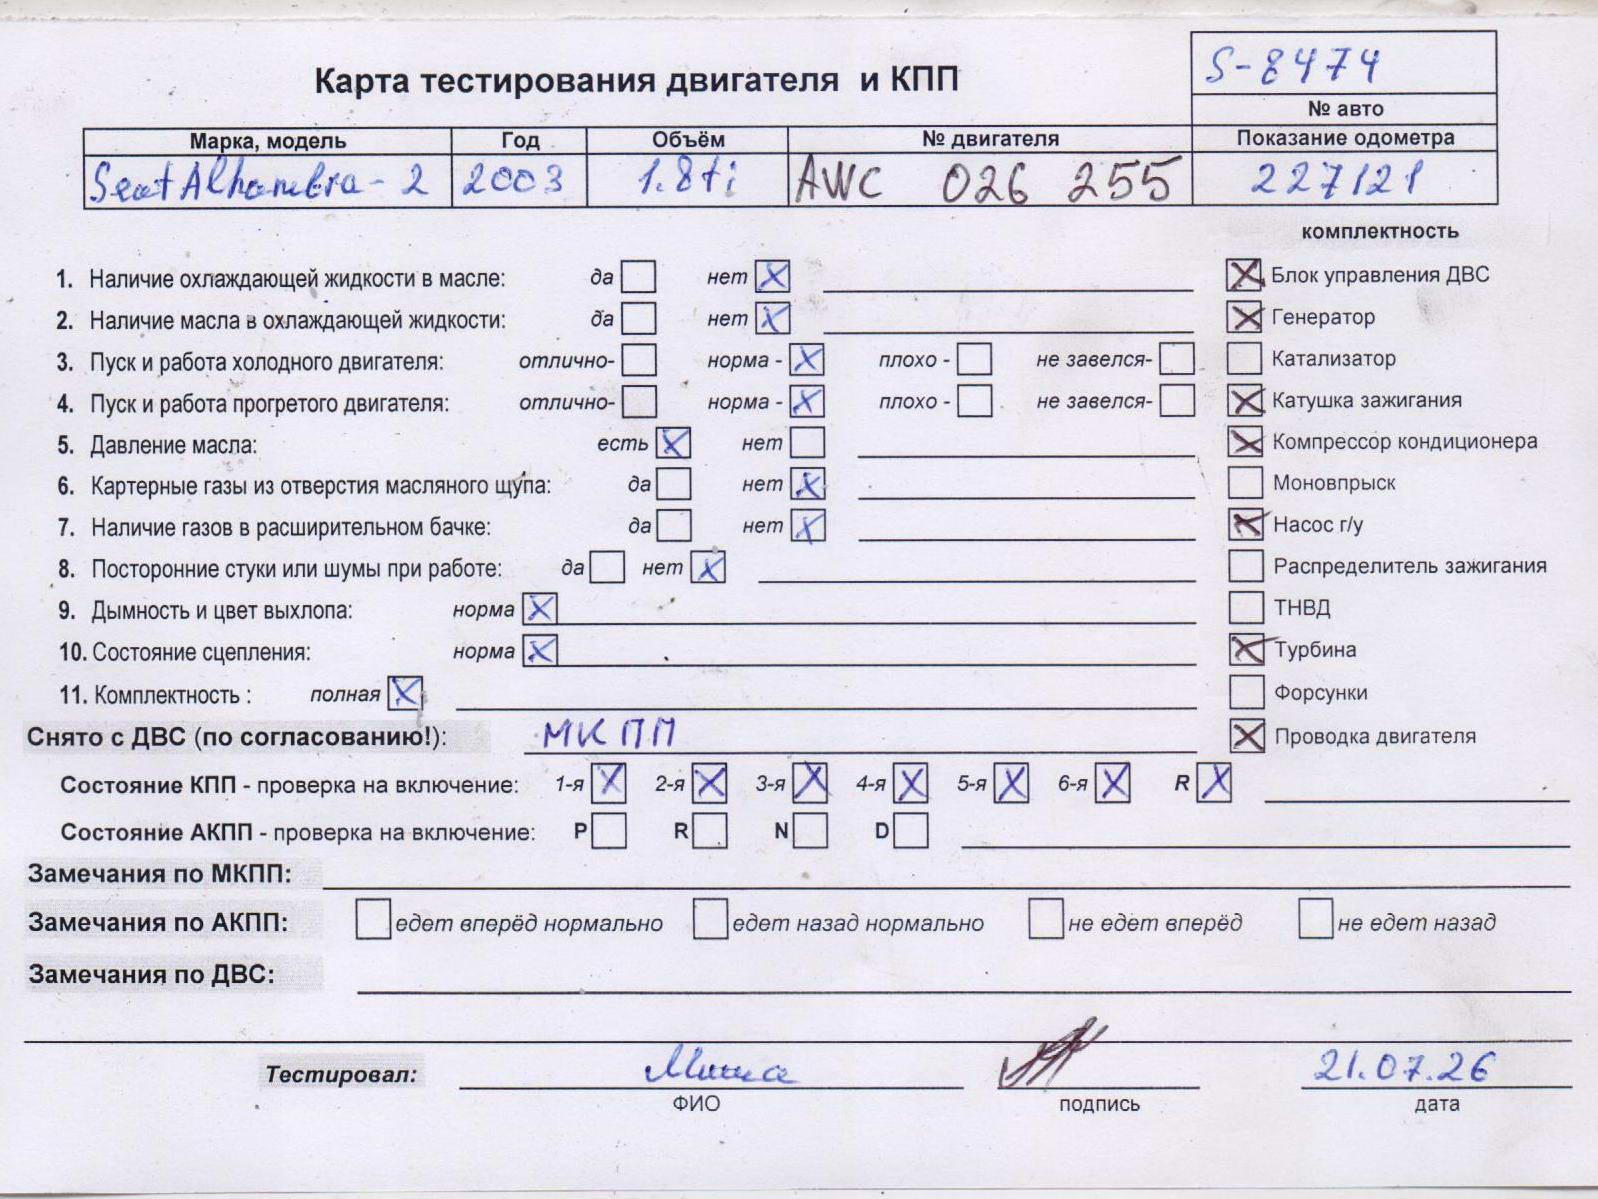 S-8474
Карта тестирования двигателя и КПП
№ авто
Марка, модель Год Объём № двигателя Показание одометра
Seat Alhambra-2 2003 1.8ti AWC 026 255 227121
комплектность
1. Наличие охлаждающей жидкости в масле: да нет X X Блок управления ДВС
2. Наличие масла в охлаждающей жидкости: да нет X X Генератор
3. Пуск и работа холодного двигателя: отлично- норма - X плохо - не завелся- Катализатор
4. Пуск и работа прогретого двигателя: отлично- норма - X плохо - не завелся- X Катушка зажигания
5. Давление масла: есть X нет X Компрессор кондиционера
6. Картерные газы из отверстия масляного щупа: да нет X Моновпрыск
7. Наличие газов в расширительном бачке: да нет X X Насос г/у
8. Посторонние стуки или шумы при работе: да нет X Распределитель зажигания
9. Дымность и цвет выхлопа: норма X ТНВД
10. Состояние сцепления: норма X X Турбина
11. Комплектность : полная X Форсунки
Снято с ДВС (по согласованию!): МКПП X Проводка двигателя
Состояние КПП - проверка на включение: 1-я X 2-я X 3-я X 4-я X 5-я X 6-я X R X
Состояние АКПП - проверка на включение: P R N D
Замечания по МКПП:
Замечания по АКПП: едет вперёд нормально едет назад нормально не едет вперёд не едет назад
Замечания по ДВС:
Тестировал: Миша 21.07.26
ФИО подпись дата